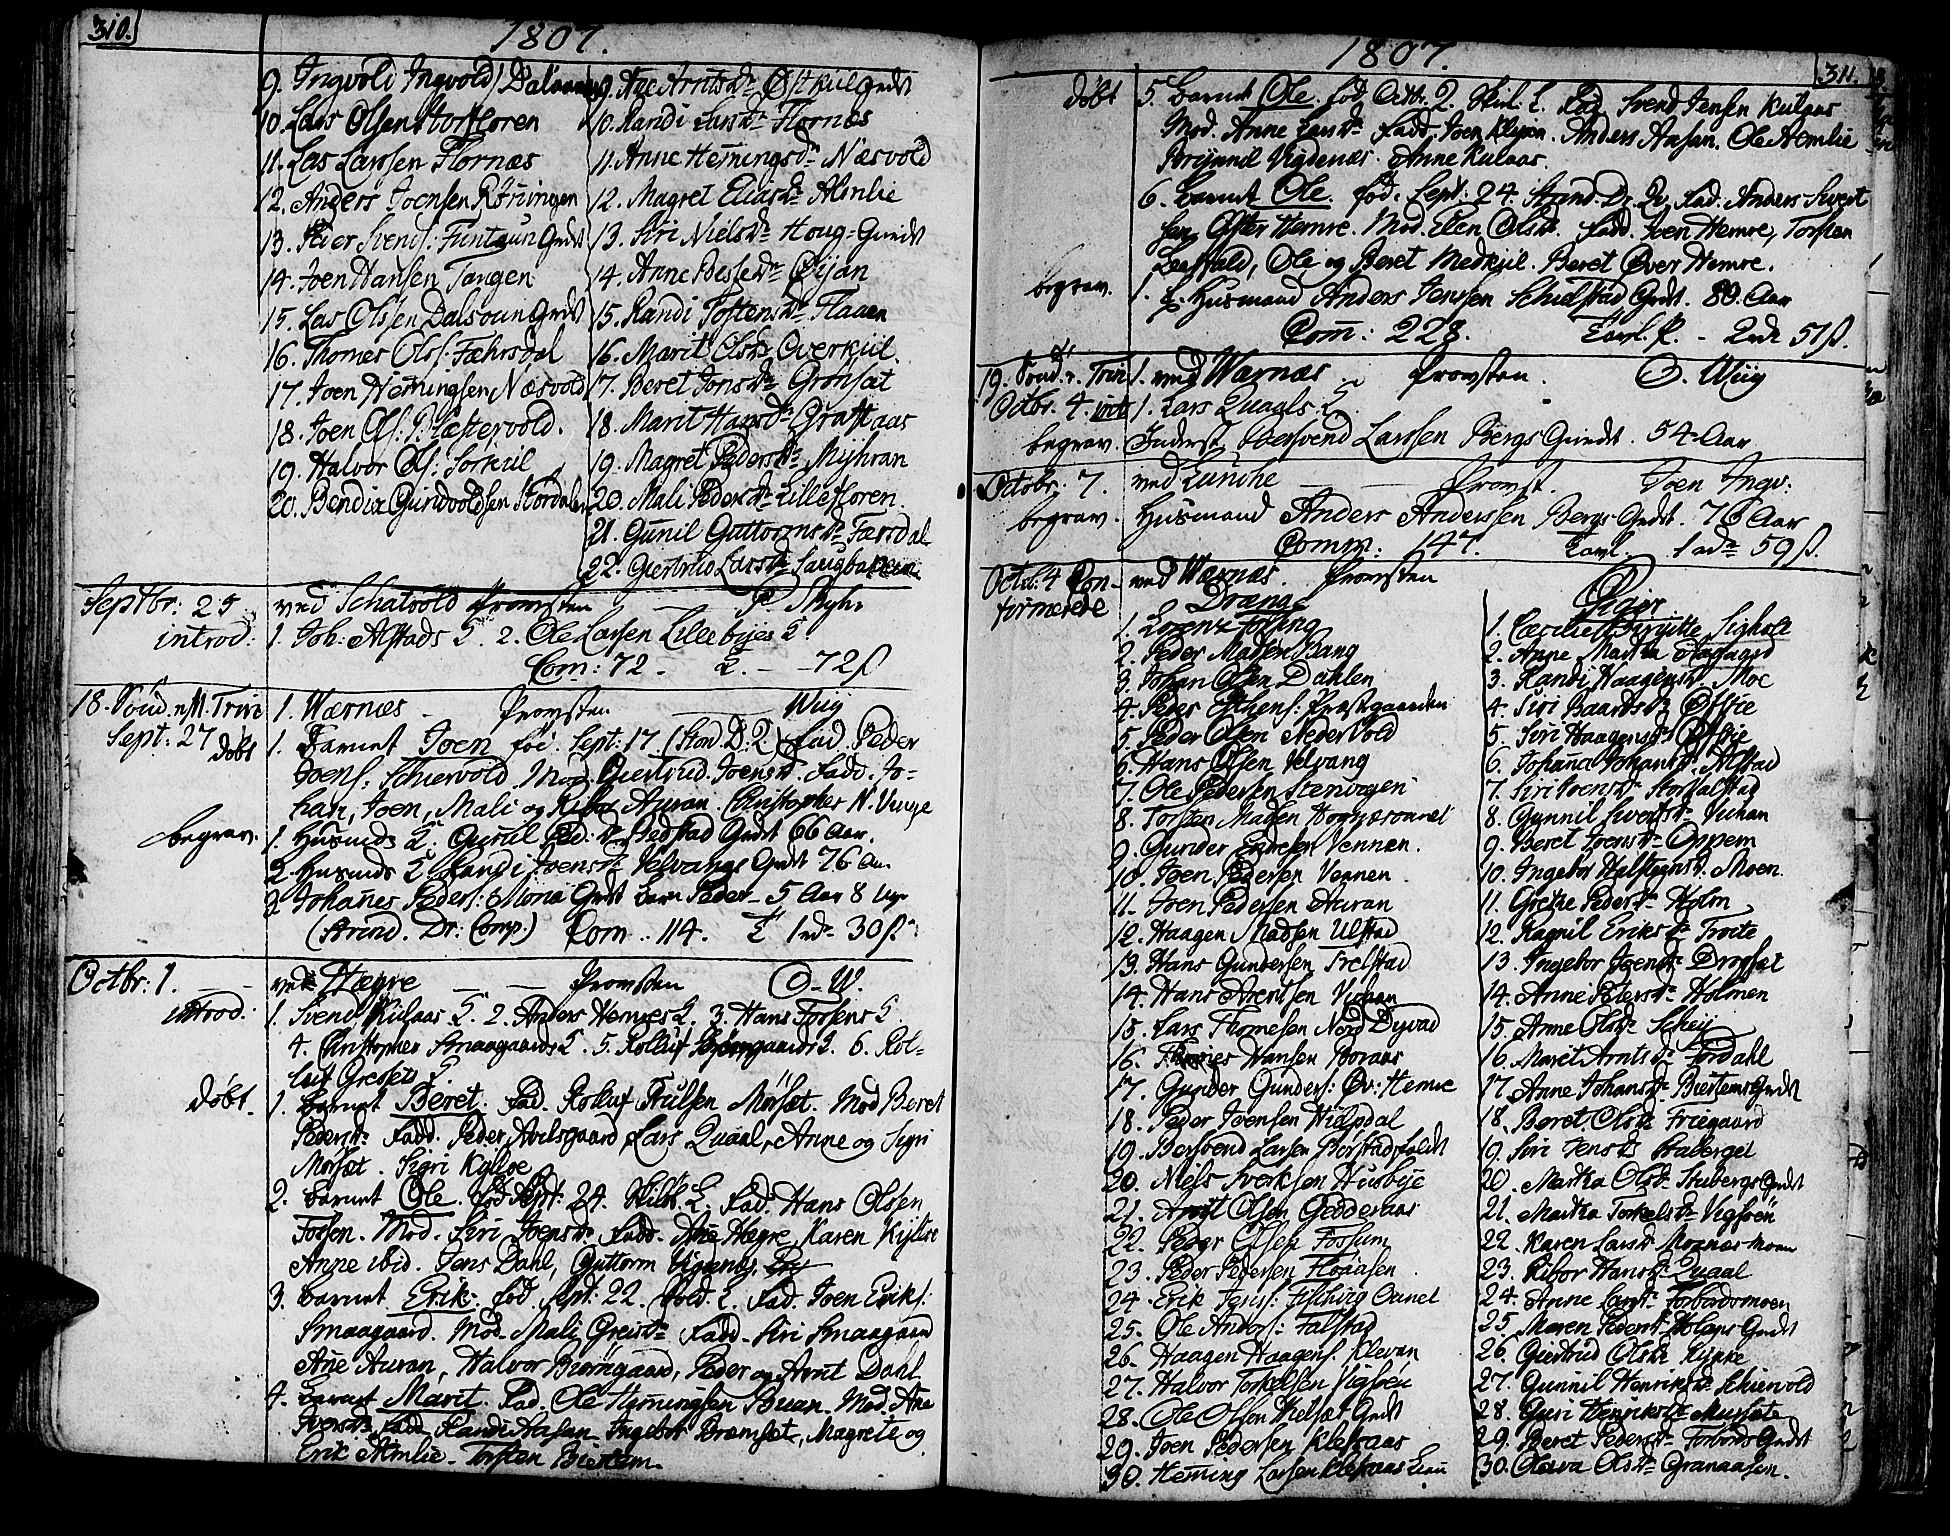 310.
1807.
9. Ingvold Ingvolds:
10. Lars Olsen Storfloren
11. Lars Larssen Flornæs
12. Anders Joensen Rønningen
13. Peder Svends: Funtaun Grdst
14. Joen Hansen Tangen
15. Lars Olssen Dalsoun Grdst
16. Thomes Olss: Fæhrsdal
17. Joen Hemingsen Næsvold
18. Joen Ols:
19. Halvor Ols: Sorkiil
20. Bendix Gunvoldsen Stordalen
9. Ane Arntsdr Østkiil Grdst
10. Randi Larsdr Flornæs
11. Anne Hemingsdr Næsvold
12. Magret Eliasdr Almlie
13. Siri Nielsdr Houg-Grndst
14. Anne Pedersdr Øijan
15. Randi Jostensdr Flaaen
16. Marit Olsdr Overkiil.
17. Beret Jonsdr Grønsat
18. Marit Hansdr Graftaas
19. Magret Pedersdr Mijhran
20. Mali Pedersdr Lillefloren.
21. Gunil Guttormsdr Færsdal
22. Giertrud Larsdr Saugbakken
Septbr: 25 ved Schatvold Promsten
introd: 1. Joh: Alstads 2. Ole Larsen Lillebijes
Com: 72 - - 72 ß
18. Sønd. n. Trin 1. Wærnes Promsten Wiig
Sept: 27 døbt 1. Barnet Joen fød. Sept. 17 (Stord. D. 2) Fad. Peder
Joens: Schiervold. Mod. Giertrud Joensdr. Fadd. Jo-
han, Joen, Mali og Auran. Christopher N. Vinge
begrav. 1. Husmds Guruil Ped.dr Bedstad Grdst 66 Aar.
2. Husmds Randi Joensdr Velvangs Grdst 76 Aar
3 Johanes Peders: Mona Grdst Barn Peder - 5 Aar 8 Ugr
(Arind. Dr: Comp.) Com. 114. 1 rdr 30 ß
Octbr: 1. ved Hægre Promsten O. W.
introd: 1. Svend Kulaas 2. Anders Hemres 3. Hans Fossens
4. Christopher Smaagaards 5. Rolluf Biørngaards 6. Rol-
luf Gresset
døbt. 1. Barnet Beret. Fad. Rolluf Trulsen Mørset. Mod Beret
Pedersdr. Fadd. Peder Avelsgaard, Lars Quaal, Anne og Sigri
Mørset. Sigri Kijlloe
2. Barnet Ole. fød Sept: 24. Fad. Hans Olssen
Fossen. Mod. Siri Joensdr. Fadd. Ane Hegre, Karen Kijlloe
Anne ibid. Jens Dahl, Guttorm Vigdenæs.
3. Barnet Erik. fød. Sept: 22. Fad. Joen Eriks:
Smaagaard. Mod. Mali Greisdr. Fadd. Siri Smaagaard
Ane Auran, Halvor Biørngaard, Peder og Arnt Dahl
4. Barnet Marit. Fad. Ole Hemingsen Bouan. Mod. Ane
Svensdr. Fadd. Randi Aasan, Ingebor Bremset, Magrete og
Erik Almlie. Torsten Biertem.
1807.
311.
døbt 5. Barnet Ole. fød Octbr. 2. Fad. Svend Jensen Kulaas
Mod. Anne Larsdr. Fadd. Joen Klijsen. Anders Aasan. Ole Aemlie
Brijnnil Vigdenæs. Anne Kulaas.
6. Barnet Ole. fød. Sept: 24. Fad. Anders Sivert
sen Øfter Hemre. Mod. Elen Olsdr. Fadd. Joen Hemre, Torsten
Leesvald, Ole og Beret Medkiil. Beret Øver Hemre.
begrav. 1. Husmand Anders Jenssen Schielstad Grdst. 80. Aar
Com: 228. Tavl. P. - 2 rdr 51 ß.
19. Sønd. n. Trin 1. ved Wærnæs Promsten. O. Wiig
Octbr. 4. introd 1. Lars Quaals
begrav. Inderst Bersvend Larssen Bergs Grndst. 54 Aar
Octobr. 7. ved Lånche Promst. Joen Ingv:
begrav. Husmand Anders Anderssen Bergs Grdst. 76 Aar
Comm: 147. Tavl. 1 rdr 59 ß.
Octbr: 4 Con- ved Wærnæs. Promsten
firmerede
Drænge
1. Lorenz
2. Peder Madsen Bang
3. Johan Olsen Dahlen
4. Peder Præstgaarden
5. Peder Olsen Nedervold
6. Hans Olsen Velvang
7. Ole Pedersen Stenvegen
8. Torsten Madsen Hognæsvanet
9. Gunder Endresen Vennen.
10. Joen Pedersen Vennen
11. Joen Pedersen Auran
12. Haagen Madsen Ulstad
13. Hans Gundersen Trelstad
14. Hans Arentsen Vichan
15. Lars Thomesen Nord Dyvad
16. Hansen Boraas
17. Gunder Gunders: Øv: Hemre
18. Peder Ivensen Hielpdal
19. Bersvend Larsen Borstadfaldt
20. Niels Sverksen Husbije
21. Arnt Olsen Gedderaas
22. Peder Olsen Fossum
23. Peder Pedersen Floaasen
24. Erik
25. Ole Anders: Falstad
26. Haagen Haagens. Klevan
27. Halvor Torkelsen Vigsoen
28. Ole Olsen Hielset Grdst
29. Joen Pedersen Klefsaas
30. Heming Larsen Klefsaas
Piger
1. Cæcilie Birgitte Sigholt
2. Anne Martha Aagaard
3. Randi Haagensdr. Moe
4. Siri Baardsdr Øfstie
5. Siri Haagensdr Øfstie
6. Johana Johansdr. Alstad
7. Siri Joensdr Storfalstad
8. Gunnil Sivertsdr Vichan
9. Beret Joensdr Oppem
10. Ingebor Halsteensdr. Moen.
11. Grethe Pedersdr Holm
12. Ragnil Eriksdr Troite
13. Ingebor Joensdr Drogset
14. Anne Petersdr Holmen
15. Anne Olsdr Scheij
16. Marit Arntsdr Fordahl
17. Anne Johansdr Biertems Grdst
18. Beret Olsdr Friegaard
19. Siri Jensdr Braberget
20. Martha Olsdr Stubergs Grdst
21. Martha Torkelsdr Vigsoen
22. Karen Larsdr Moenæs Moen
23. Ribor Hansdr Quaal
24. Anne Larsdr Forbordsmoen
25. Maren Pedersdr Grdst
26. Giertrud Olsdr
27. Gunnil Henriksdr Schiervold
28. Guri Henriksdr
29. Beret Pedersdr Forbords Grdst
30. Olava Olsdr Granaasen.